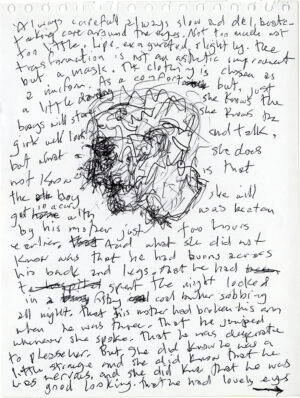 Always carefull always slow and deliberate.
Taking care around the eyes. Not too much not
too little. Lips exagurated slightly. The
transformation is not an asthetic improvement
but a mask. The clothing is chosen as
a uniform. As a comfort but, just
a little she knows the
boys will stare she knows the
girls will look and talk.
but what she does
not know is that
the boy she will
get in a car with was beaten
by his mother just two hours
earlier. And what she did not
know was that he had burns across
his back and legs. That he had
spent the night locked
in a filthy coal bunker sobbing
all night. That his mother had broken his arm
when he was three. That he jumped
whenever she spoke. That he was desperate
to please her. But she did know he was a
little strange and she did know that he
was nervous, and she did know that he was
good looking. That he had lovely eyes